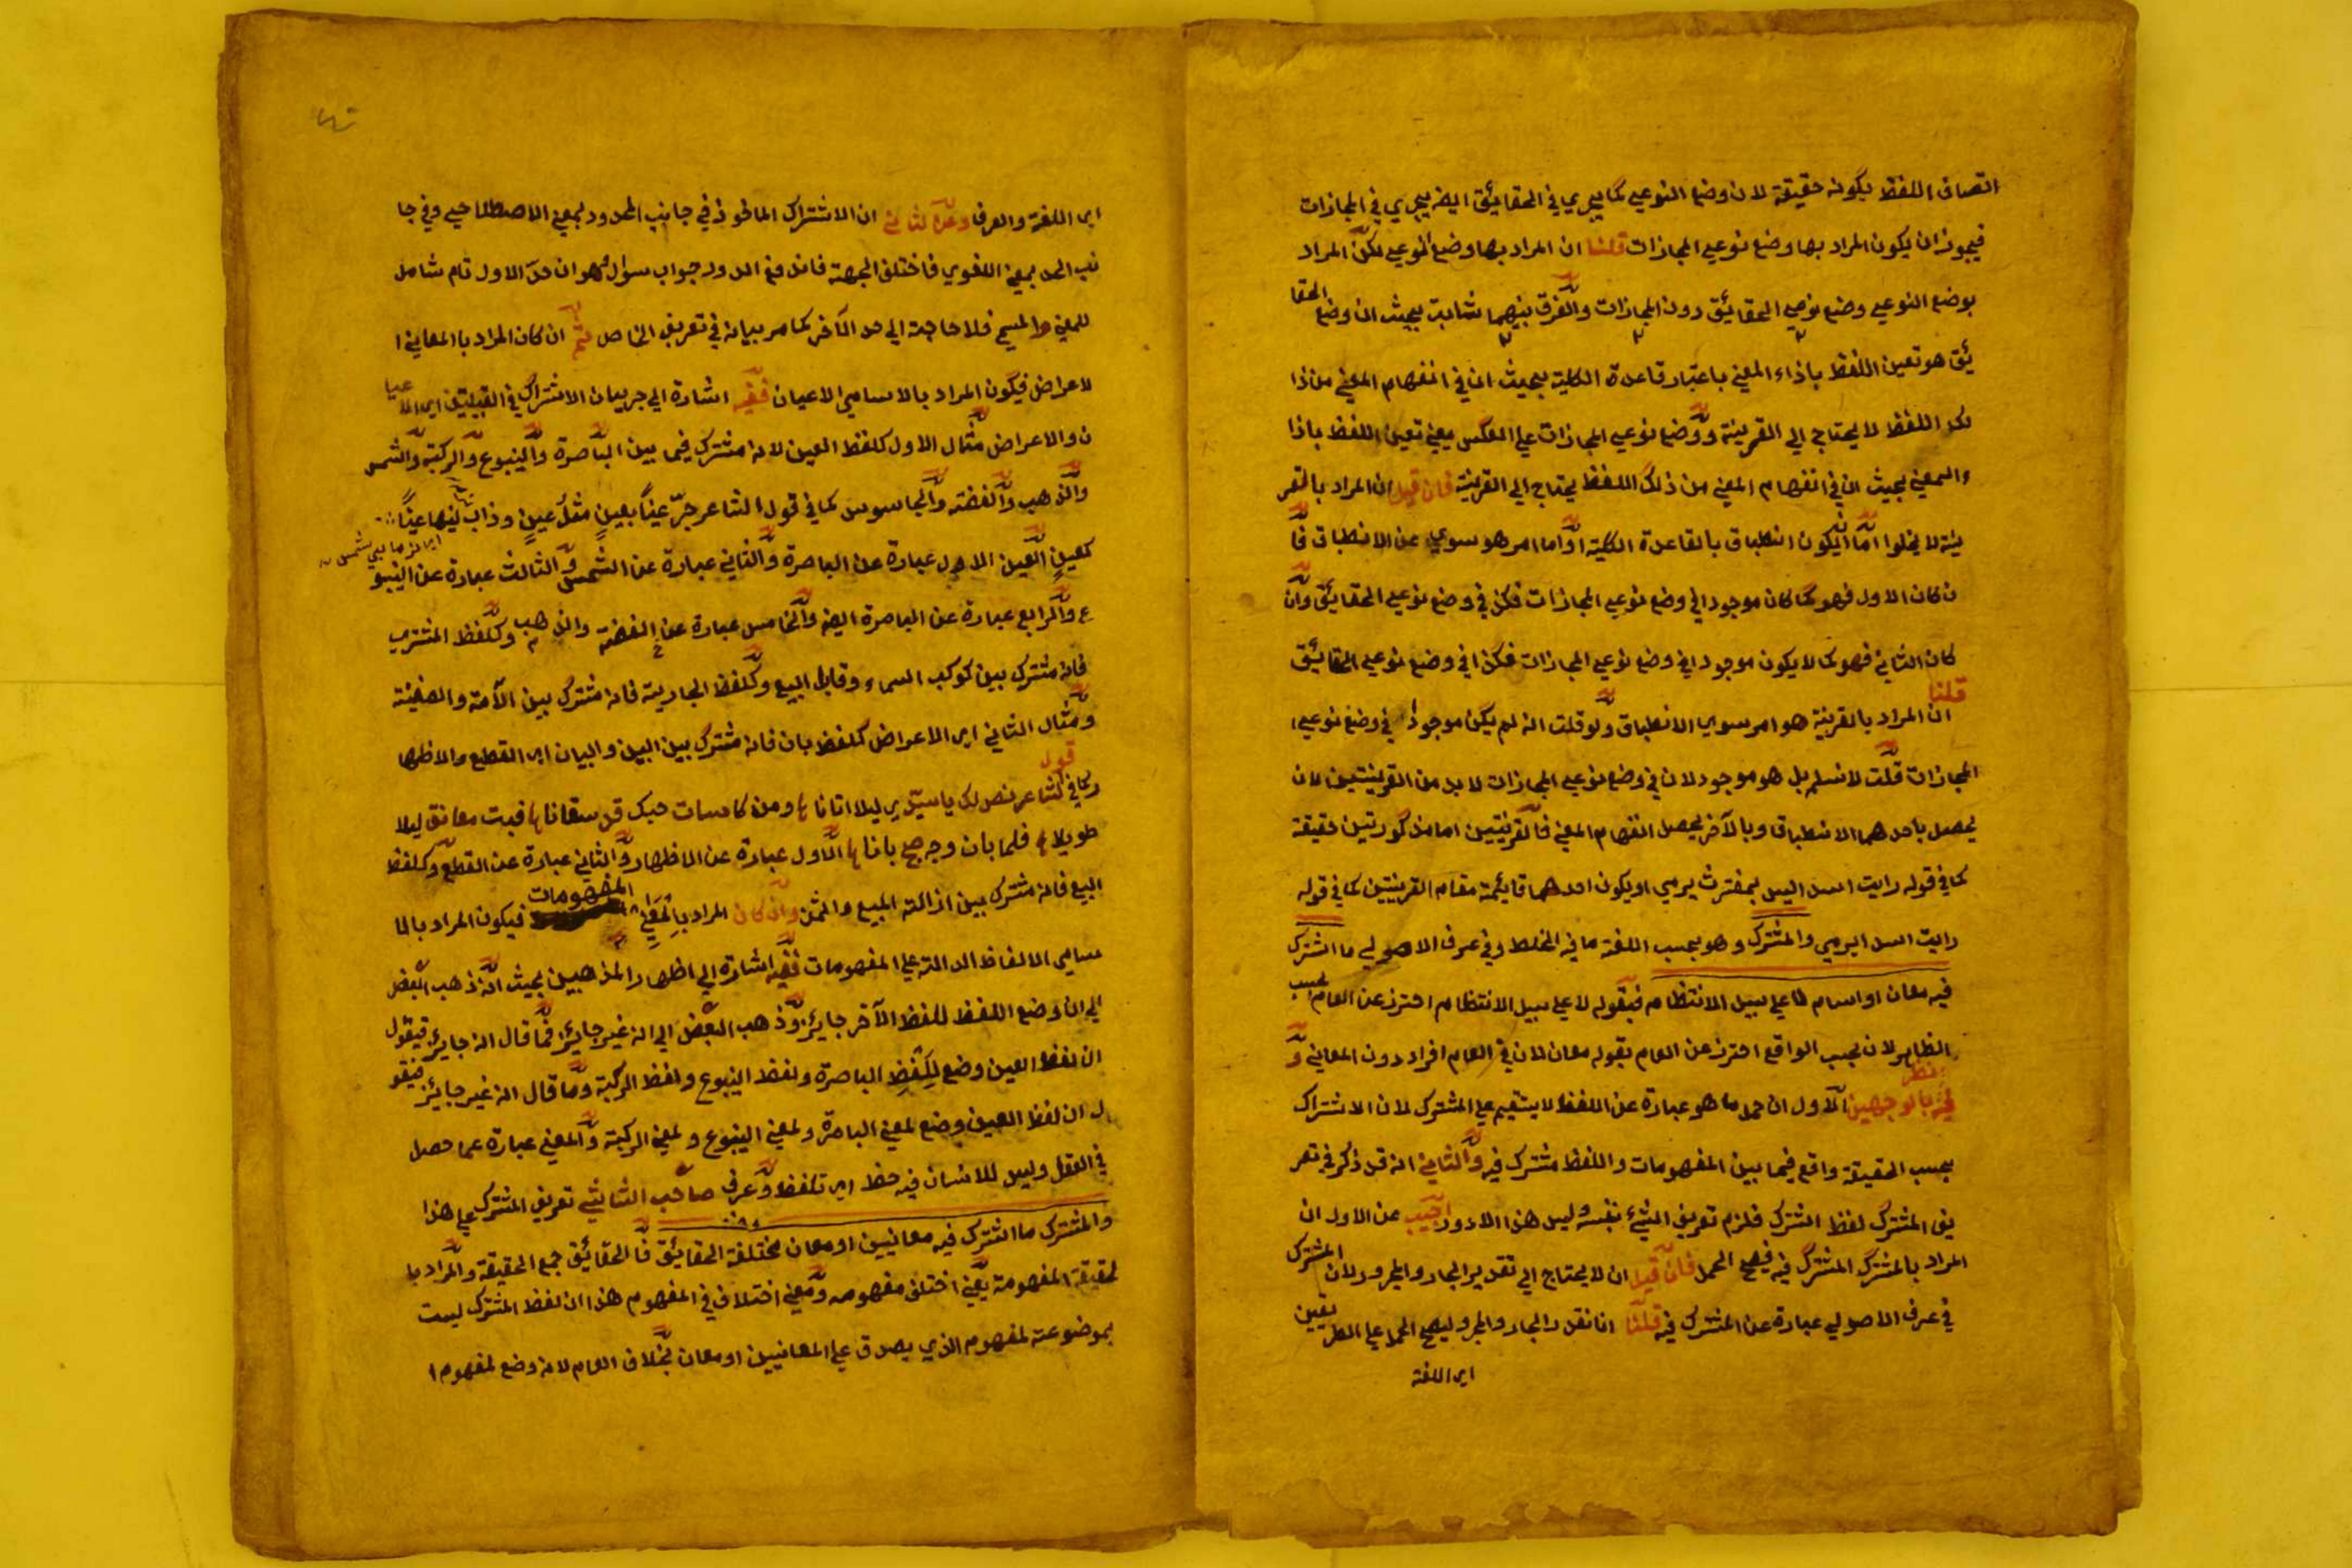 اتصاف اللفظ بكونه حقيقة لان وضع النوعي كما يجري في الحقائيق ايضه يجري في المجازات
فيجوز ان يكون المراد بها وضع نوعي المجازات قلنا ان المراد بها وضع النوعي لكن المراد
بوضع النوعي وضع نوعي الحقائيق دون المجازات والفرق بينهما ثابت بحيث ان وضع الحقا
ئق هو تعين اللفظ باذاء المعني باعتبار قاعدة الكلية بحيث ان في انفهام المعني من ذا
لك اللفظ لا يحتاج الي القرينة ووضع نوعي المجازات علي العكس يعني تعين اللفظ باذا
ء المعني بحيث ان في انفهام المعني من ذلك اللفظ يحتاج الي القرينة فان قيل ان المراد بالقر
ينة لا يخلوا اما ان يكون انطباق بالقاعدة الكلية او اما امر هو سوي عن الانطباق فا
ن كان الاول فهو كما كان موجودا في وضع نوعي المجازات فكذا في وضع نوعي الحقائيق وان
كان الثاني فهو كما لا يكون موجودا في وضع نوعي المجازات فكذا في وضع نوعي الحقائيق
قلنا
ان المراد بالقرينة هو امر سوي الانطباق ولو قلت انه لم يكن موجودا في وضع نوعي ا
لمجازات قلت لا نسلم بل هو موجود لان في وضع نوعي المجازات لا بد من القرينتين لان
يحصل باحدهما الانطباق وبالآخر يحصل انفهام المعني فالقرينتين اما مذكورتين حقيقة
كما في قوله رايت اسد اليس بمفترث يرمي او يكون احدهما قايمة مقام القرينتين كما في قوله
رايت اسد ايرمي والمشترك وهو بحسب اللغة ما فيه الخلط وفي عرف الاصولي ما اشترك
فيه معان او اسام لا علي سبيل الانتظام فبقوله لا علي سبيل الانتظام احترز عن العام بحسب
الظاهر لان بحسب الواقع احترز عن العام بقوله معان لان في العام افراد دون المعاني و
فيه نظر بالوجهين الاول ان حمل ما هو عبارة عن اللفظ لا يستقيم علي المشترك لان الاشتراك
بحسب الحقيقة واقع فيما بين المفهومات واللفظ مشترك فيه والثاني انه قد ذكر في تعر
يف المشترك لفظ اشترك فلزم تعريف الشيء بنفسه وليس هذا الا دور اجيب عن الاول ان
المراد بالمشترك المشترك فيه فيصح الحمل فان قيل ان لا يحتاج الي تقدير الجار والمجرور لان المشترك
في عرف الاصولي عبارة عن المشترك فيه قلنا انا نقدر الجار والمجرور ليصح الحمل علي الطريقين
اي اللغة
اي اللغة والعرف وعن الثاني ان الاشتراك الماخوذ في جانب المحدود بمعني الاصطلاحي وفي جا
نب الحد بمعني اللغوي فاختلف الجهة فاندفع الدور جواب سوال وهو ان حد الاول تام شامل
للمعني والمسمي فلا حاجة الي حد الآخر كما مر بيانه في تعريف الخاص ثم ان كان المراد بالمعاني ا
لاعراض فيكون المراد بالاسامي الاعيان ففيه اشارة الي جريان الاشتراك في القبيلتين اي الاعيا
ن والاعراض مثال الاول كلفظ العين لانه مشترك فيما بين الباصرة والينبوع والركبة والشمس
والذهب والفضة والجاسوس كما في قول الشاعر عينا بعين مثل عين وذاب عينها عينا
كعين العين الاول عبارة عن الباصرة والثاني عبارة عن الشمس والثالث عبارة عن الينبو
ع والرابع عبارة عن الباصرة ايضه والخامس عبارة عن الفضة والذهب وكلفظ المشتري
فانه مشترك بين كوكب السماء وقابل البيع وكلفظ الجارية فانه مشترك بين الآمة والصفينة
ومثال الثاني اي الاعراض كلفظ بان فانه مشترك بين البين والبيان اي القطع والاظها
ر كما في قول الشاعر لك يا سيدي ليلا اتانا ومن كاسات حبك قد سقانا فبت معانق ليلا
طويلا فلما بان وجه صبح بانا الاول عبارة عن الاظهار والثاني عبارة عن القطع وكلفظ
البيع فانه مشترك بين ازالته المبيع والثمن وان كان المراد بالمعاني المفهومات فيكون المراد بالا
سامي الالفاظ الدالة علي المفهومات ففيه اشارة الي اظهار المذهبين بحيث انه ذهب البعض
الي ان وضع اللفظ للفظ الآخر جايز وذهب البعض الي انه غير جايز فما قال انه جايز فيقول
ان لفظ العين وضع للفظ الباصرة ولفظ الينبوع ولفظ الركبة وما قال انه غير جايز فيقو
ل ان لفظ العين وضع لمعني الباصرة ولمعني الينبوع ولمعني الركبة والمعني عبارة عما حصل
في العقل وليس للانسان فيه حظ اي تلفظ وعرف صاحب الشاشي تعريف المشترك علي هذا
والمشترك ما اشترك فيه معانيين او معان مختلفة الحقائيق فالحقائيق جمع الحقيقة والمراد با
لحقيقة المفهومة يعني اختلف مفهومه ومعني اختلاف في المفهوم هذا ان لفظ المشترك ليست
بموضوعة لمفهوم الذي يصدق علي المعانيين او معان بخلاف العام لانه وضع لمفهوم ا